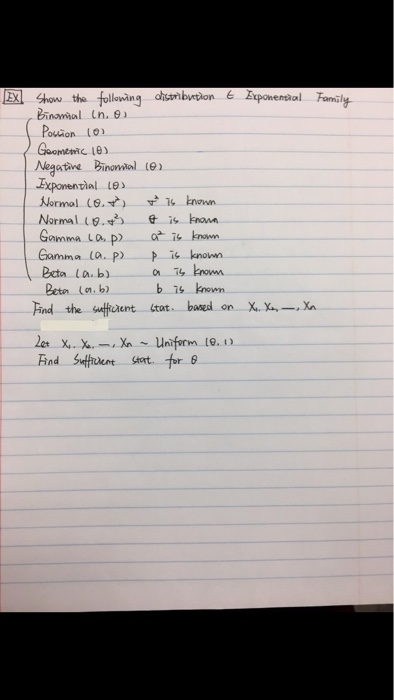 EX Show the following distribution ∈ Exponential Family
Binomial (n, θ)
Possion (θ)
Geometric (θ)
Negative Binomial (θ)
Exponential (θ)
Normal (θ, σ²) σ² is known
Normal (θ, σ²) θ is known
Gamma (a, p) a² is known
Gamma (a, p) p is known
Beta (a, b) a is known
Beta (a, b) b is known
Find the sufficient stat. based on X₁, X₂, —, Xn
Let X₁, X₂, —, Xn ~ Uniform (θ, 1)
Find Sufficient stat. for θ